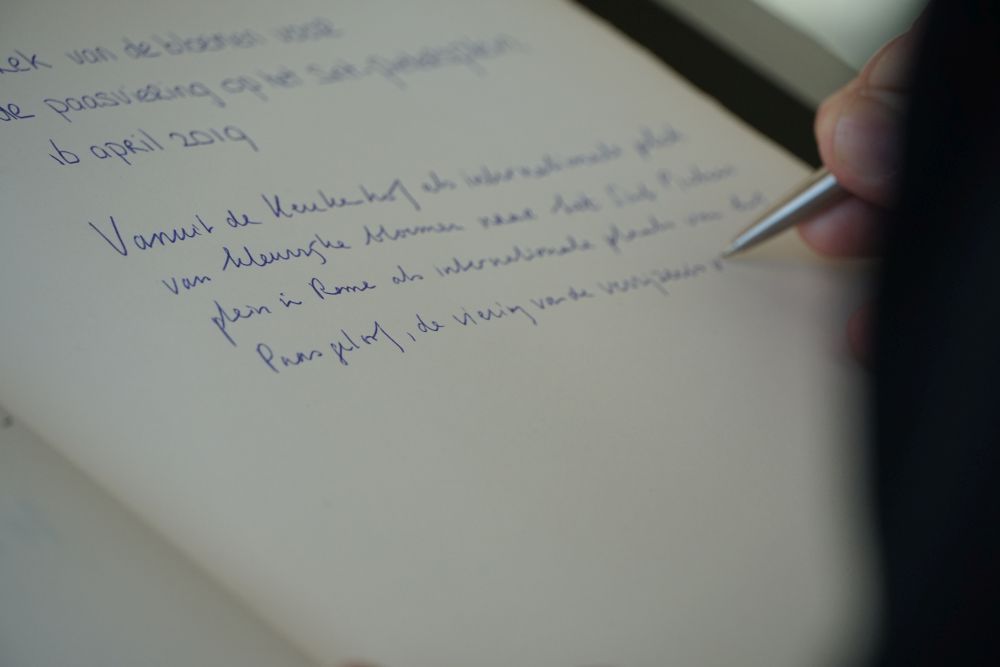 van de bloemen voor
de paasviering op het Sint-Pietersplein
16 april 2019
Vanuit de Keukenhof als internationale plek
van kleurrijke bloemen naar het Sint Pieters
plein in Rome als internationale plaats van het
Paasgeloof, de viering van de verrijzenis